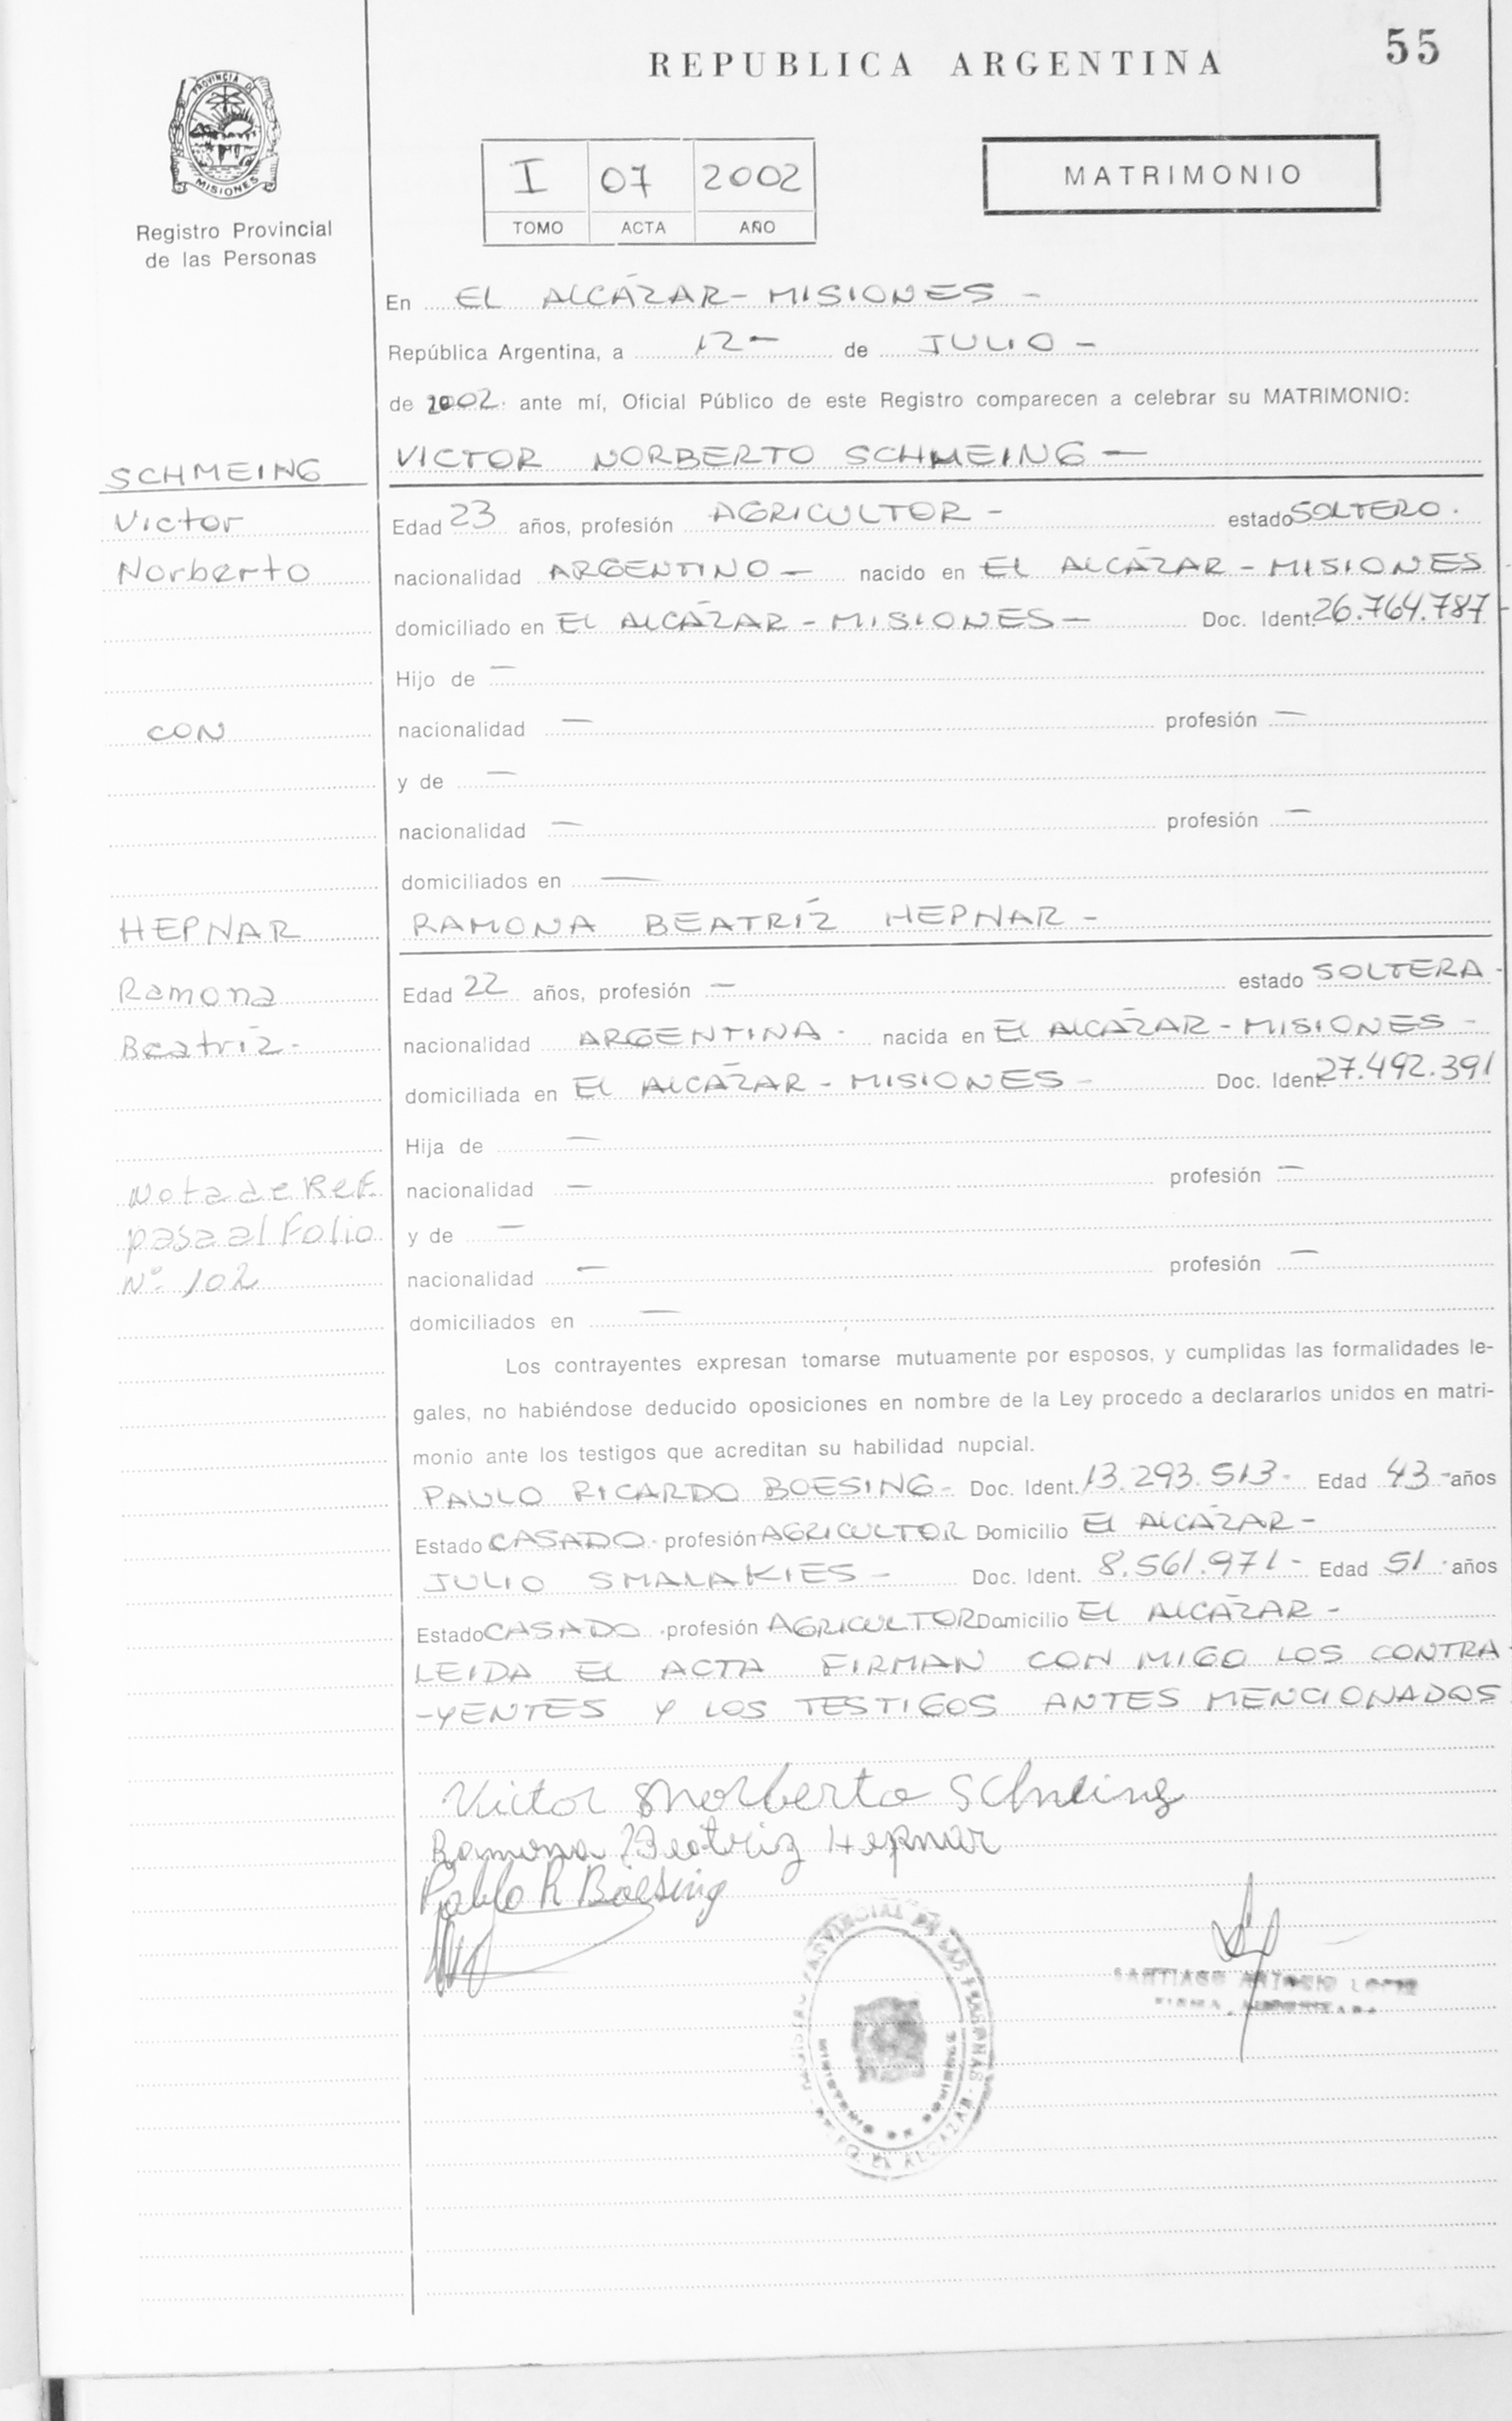 55
REPUBLICA ARGENTINA
PROVINCIA DE
MISIONES
Registro Provincial
de las Personas
I 07 2002
TOMO ACTA AÑO
MATRIMONIO
En EL ALCÁZAR - MISIONES -
República Argentina, a 12 - de JULIO -
de 2002. ante mí, Oficial Público de este Registro comparecen a celebrar su MATRIMONIO:
SCHMEING VICTOR NORBERTO SCHMEING -
Victor Edad 23 años, profesión AGRICULTOR - estado SOLTERO.
Norberto nacionalidad ARGENTINO - nacido en EL ALCÁZAR - MISIONES
domiciliado en EL ALCÁZAR - MISIONES - Doc. Ident. 26.764.787 -
Hijo de —
CON nacionalidad — profesión —
y de —
nacionalidad — profesión —
domiciliados en —
HEPNAR RAMONA BEATRÍZ HEPNAR -
Ramona Edad 22 años, profesión — estado SOLTERA -
Beatriz - nacionalidad ARGENTINA - nacida en EL ALCÁZAR - MISIONES -
domiciliada en EL ALCÁZAR - MISIONES - Doc. Ident. 27.492.391
Hija de —
Nota de Ref. nacionalidad — profesión —
pasa al Folio y de —
Nº 102 nacionalidad — profesión —
domiciliados en —
Los contrayentes expresan tomarse mutuamente por esposos, y cumplidas las formalidades le-
gales, no habiéndose deducido oposiciones en nombre de la Ley procedo a declararlos unidos en matri-
monio ante los testigos que acreditan su habilidad nupcial.
PAULO RICARDO BOESING - Doc. Ident. 13.293.513 - Edad 43 - años
Estado CASADO - profesión AGRICULTOR Domicilio EL ALCÁZAR -
JULIO SMALAKIES - Doc. Ident. 8.561.971 - Edad 51 - años
Estado CASADO - profesión AGRICULTOR Domicilio EL ALCÁZAR -
LEIDA EL ACTA FIRMAN CON MIGO LOS CONTRA
-YENTES Y LOS TESTIGOS ANTES MENCIONADOS
Victor Norberto Schmeing
Ramona Beatriz Hepnar
Pablo R Boesing
SANTIAGO